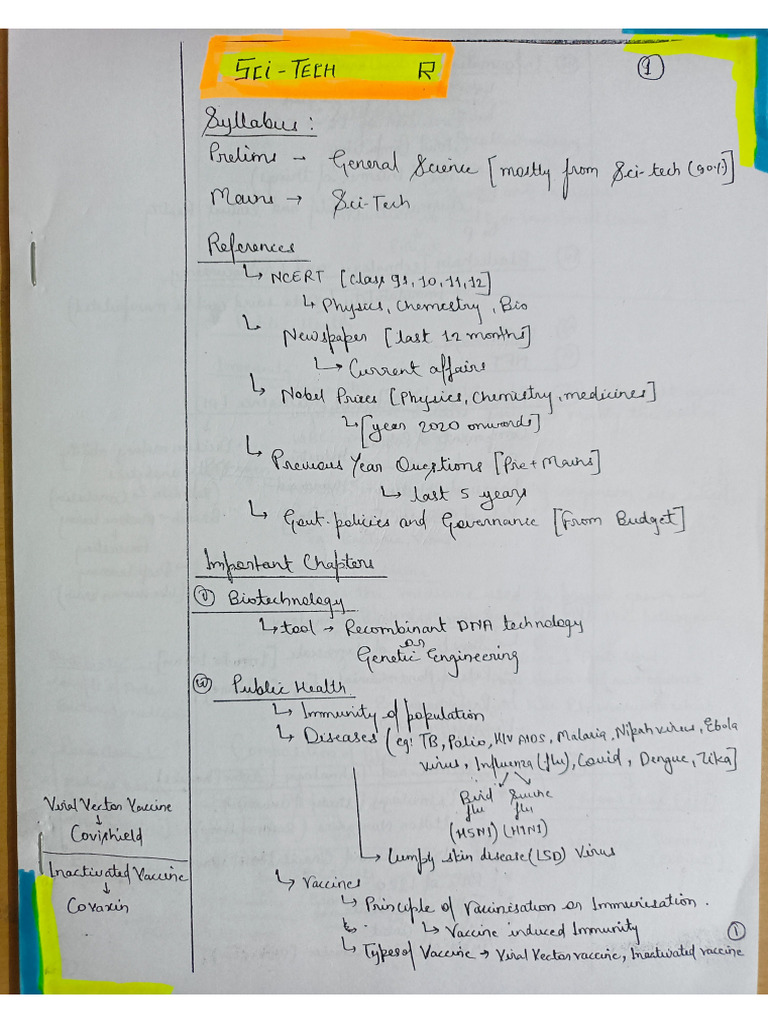 Sci-TECH R
1
Syllabus :
Prelims → General Science [mostly from Sci-tech (90%)]
Mains → Sci-Tech
References
↳ NCERT [Class 9, 10, 11, 12]
↳ Physics, Chemestry, Bio
↳ Newspaper [last 12 months]
↳ Current affairs
↳ Nobel Prizes [Physics, Chemistry, medicines]
↳ [year 2020 onwords]
↳ Previous Year Questions [Pre + Mains]
↳ last 5 years
↳ Govt. policies and Governance [From Budget]
Important Chapters
i Biotechnology
↳ tool → Recombinant DNA technology
or
Genetic Engineering
ii Public Health
↳ Immunity of population
↳ Diseases (eg: TB, Polio, HIV AIDS, Malaria, Nipah virus, Ebola
virus, Influenza (flu), Covid, Dengue, Zika]
Bird Swine
flu flu
(H5N1) (H1N1)
↳ Lumpy skin disease (LSD) Virus
↳ Vaccines
↳ Principle of Vaccinisation or Immunisation.
↳ Vaccine induced Immunity
↳ Types of Vaccine → Viral Vector vaccine, Inactivated vaccine
1
Viral Vector Vaccine
↓
Covishield
Inactivated Vaccine
↓
Covaxin